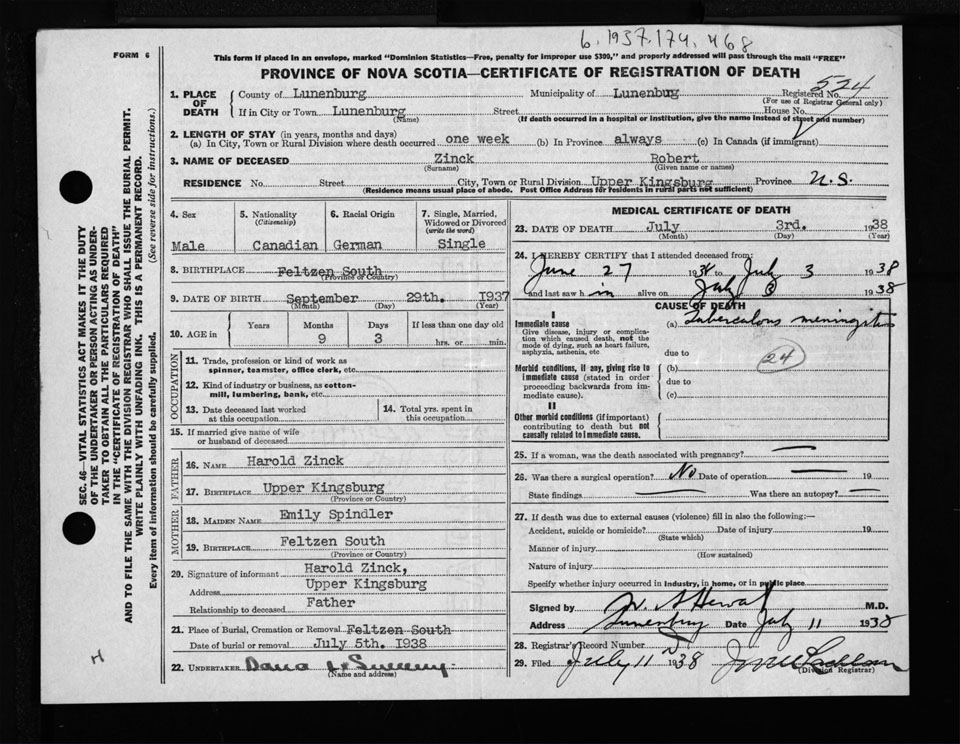 6.1937.174.468
FORM 6
This form if placed in an envelope, marked "Dominion Statistics—Free, penalty for improper use $300," and properly addressed will pass through the mail "FREE"
PROVINCE OF NOVA SCOTIA—CERTIFICATE OF REGISTRATION OF DEATH
SEC. 46—VITAL STATISTICS ACT MAKES IT THE DUTY
OF THE UNDERTAKER OR PERSON ACTING AS UNDER-
TAKER TO OBTAIN ALL THE PARTICULARS REQUIRED
IN THE "CERTIFICATE OF REGISTRATION OF DEATH"
AND TO FILE THE SAME WITH THE DIVISION REGISTRAR WHO SHALL ISSUE THE BURIAL PERMIT.
WRITE PLAINLY WITH UNFADING INK. THIS IS A PERMANENT RECORD.
Every item of information should be carefully supplied. (See reverse side for instructions.)
1. PLACE OF DEATH
County of Lunenburg Municipality of Lunenbug Registered No. 524
(For use of Registrar General only)
If in City or Town Lunenburg Street House No.
(Name) (If death occurred in a hospital or institution, give the name instead of street and number)
2. LENGTH OF STAY (in years, months and days)
(a) In City, Town or Rural Division where death occurred one week (b) In Province always (c) In Canada (if immigrant)
3. NAME OF DECEASED Zinck Robert
(Surname) (Given name or names)
RESIDENCE No. Street City, Town or Rural Division Upper Kingsburg Province N.S.
(Residence means usual place of abode. Post Office Address for residents in rural parts not sufficient)
4. Sex Male
5. Nationality (Citizenship) Canadian
6. Racial Origin German
7. Single, Married, Widowed or Divorced (write the word) Single
8. BIRTHPLACE Feltzen South
(Province or Country)
9. DATE OF BIRTH September 29th. 1937
(Month) (Day) (Year)
10. AGE in Years Months 9 Days 3 If less than one day old hrs. or min.
OCCUPATION
11. Trade, profession or kind of work as spinner, teamster, office clerk, etc.
12. Kind of industry or business, as cotton-mill, lumbering, bank, etc.
13. Date deceased last worked at this occupation
14. Total yrs. spent in this occupation
15. If married give name of wife or husband of deceased
FATHER
16. NAME Harold Zinck
17. BIRTHPLACE Upper Kingsburg
(Province or Country)
MOTHER
18. MAIDEN NAME Emily Spindler
19. BIRTHPLACE Feltzen South
(Province or Country)
20. Signature of informant Harold Zinck,
Address Upper Kingsburg
Relationship to deceased Father
21. Place of Burial, Cremation or Removal Feltzen South
Date of burial or removal July 5th. 1938
22. UNDERTAKER Dana L Sweeny
(Name and address)
MEDICAL CERTIFICATE OF DEATH
23. DATE OF DEATH July 3rd. 1938
(Month) (Day) (Year)
24. I HEREBY CERTIFY that I attended deceased from:
June 27 1938 to July 3 1938
and last saw him alive on July 3 1938
CAUSE OF DEATH
I
Immediate cause
Give disease, injury or complication which caused death, not the mode of dying, such as heart failure, asphyxia, asthenia, etc
(a) Tuberculous meningitis
due to
Morbid conditions, if any, giving rise to immediate cause (stated in order proceeding backwards from immediate cause).
(b) 24
due to
(c)
II
Other morbid conditions (if important) contributing to death but not causally related to immediate cause.
25. If a woman, was the death associated with pregnancy? —
26. Was there a surgical operation? No Date of operation — 19
State findings — Was there an autopsy? —
27. If death was due to external causes (violence) fill in also the following:—
Accident, suicide or homicide? Date of injury 19
(State which)
Manner of injury
(How sustained)
Nature of injury
Specify whether injury occurred in Industry, in home, or in public place
Signed by M.D.
Address Lunenburg Date July 11 1938
28. Registrar's Record Number
29. Filed July 11 1938
(Division Registrar)